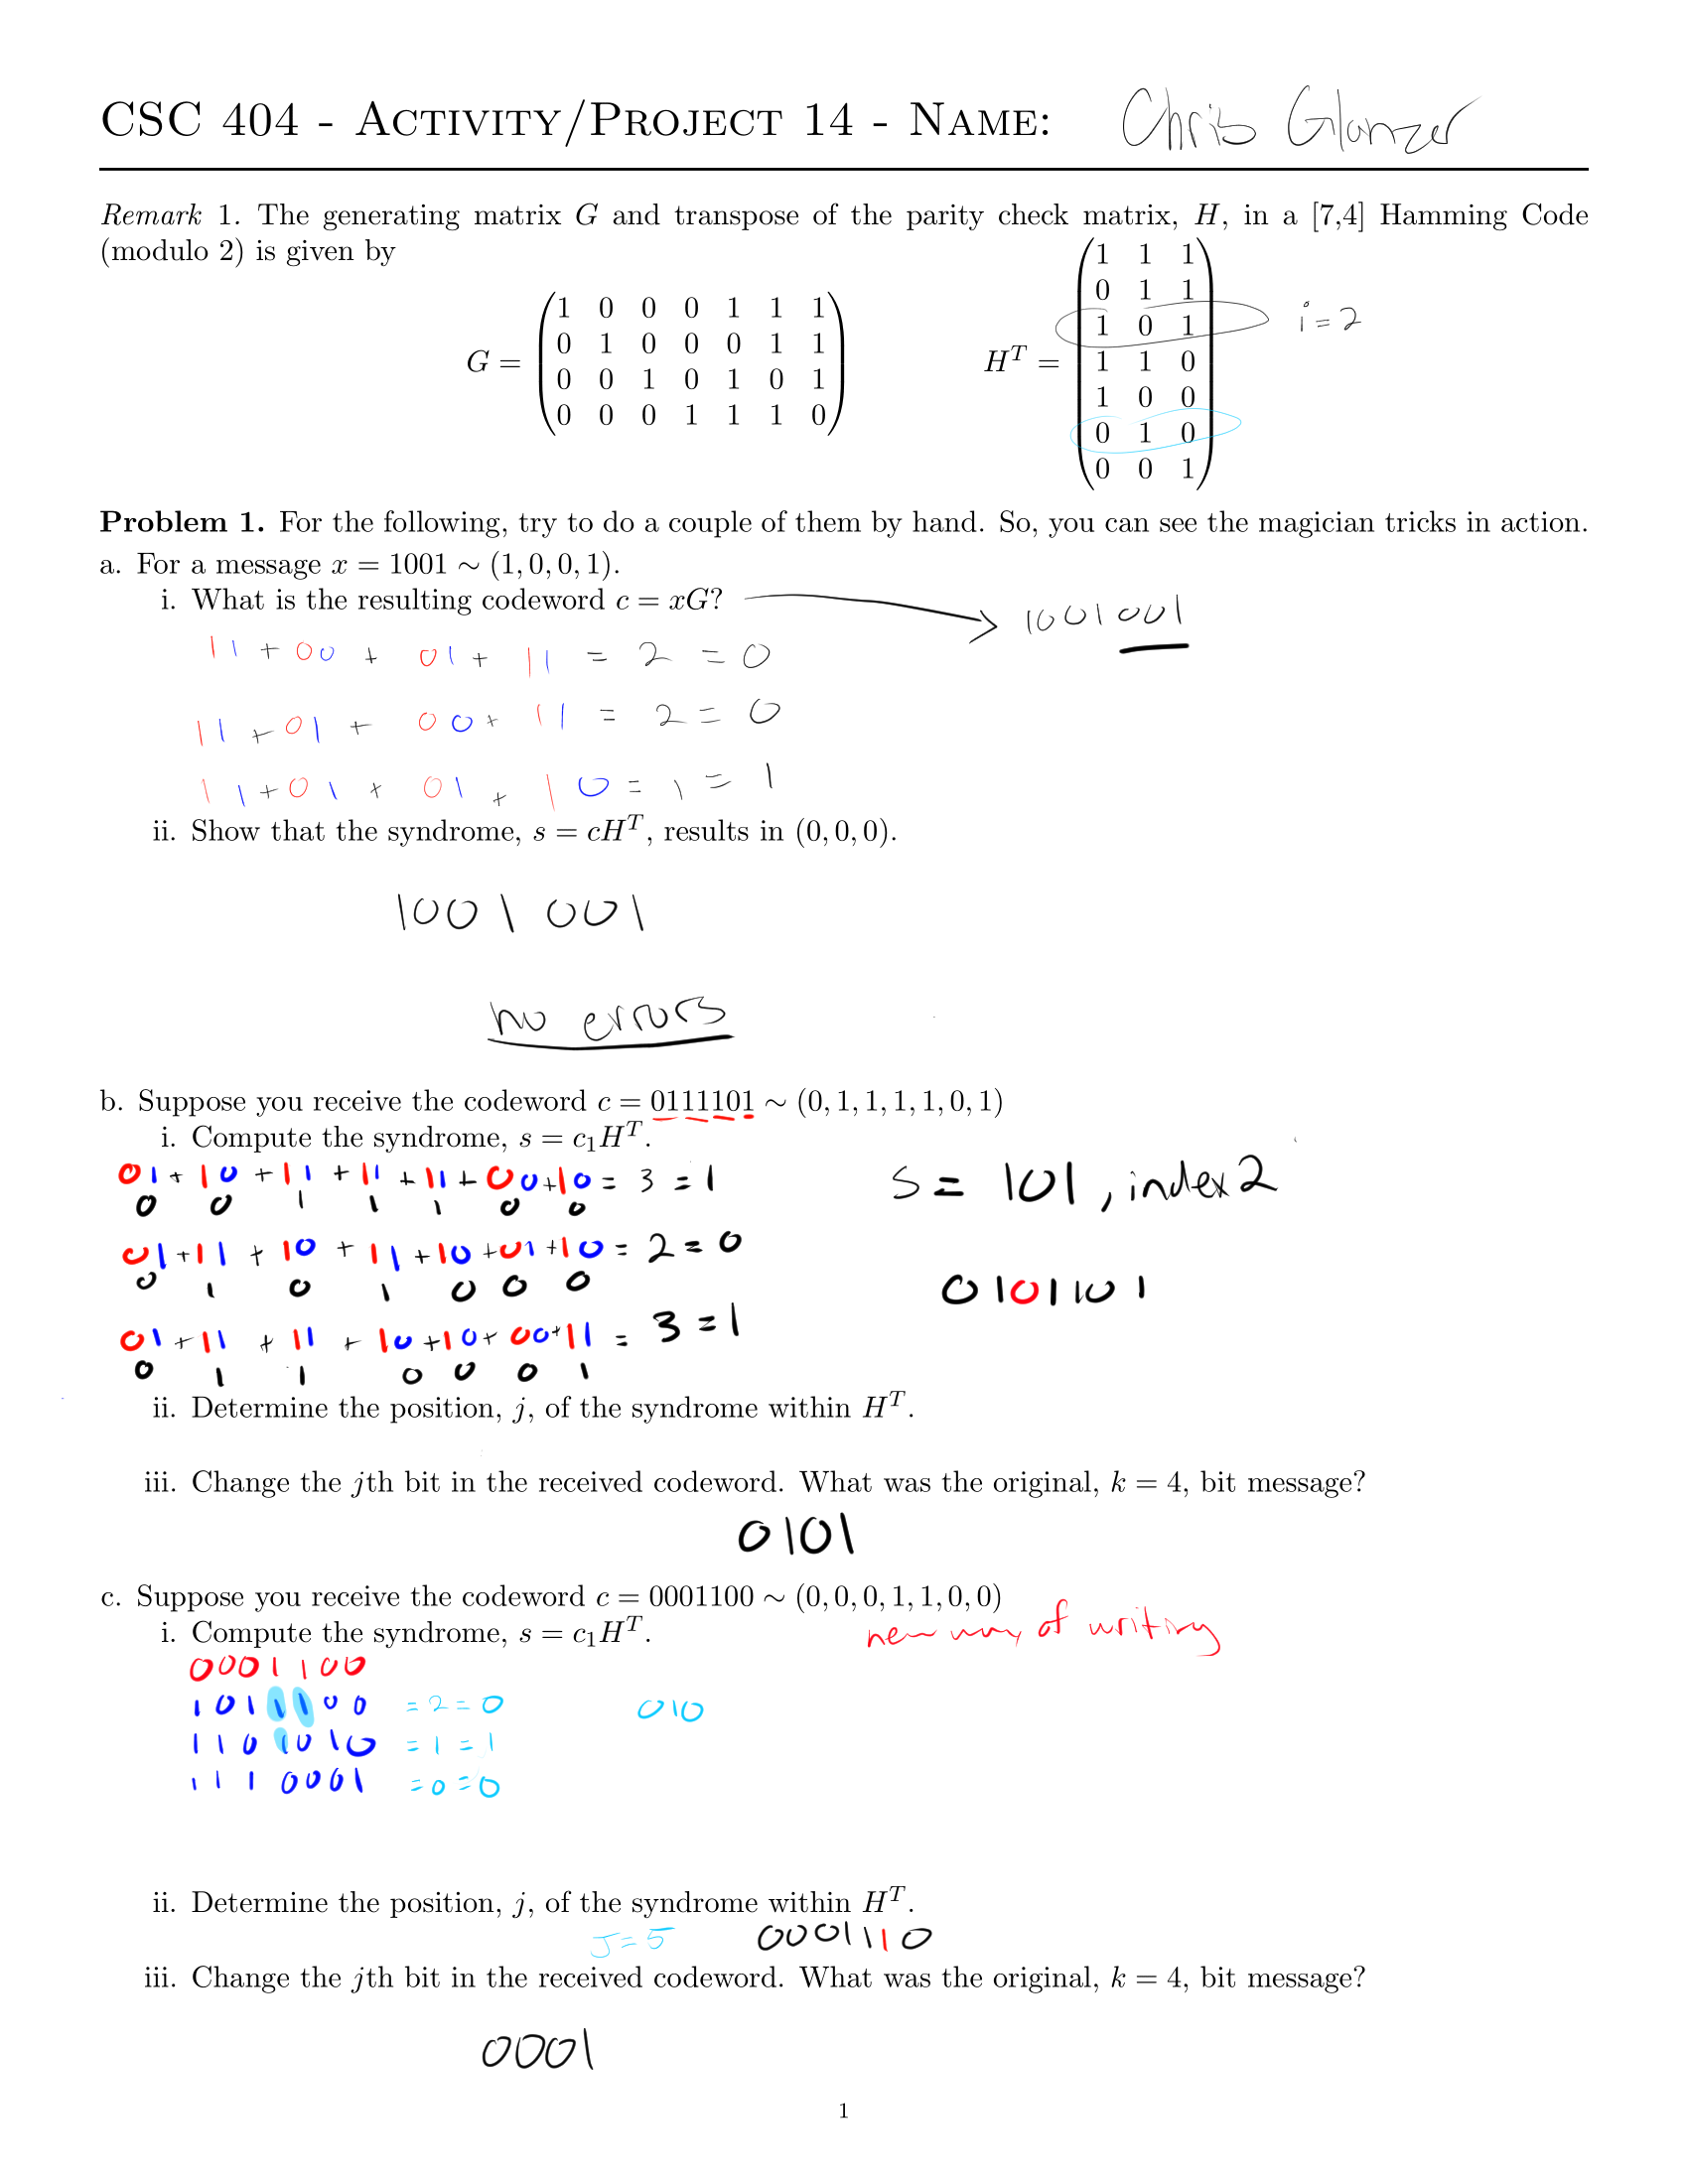 CSC 404 - Activity/Project 14 - Name: Chris Glanzer
Remark 1. The generating matrix G and transpose of the parity check matrix, H, in a [7,4] Hamming Code
(modulo 2) is given by
G = (1 0 0 0 1 1 1
0 1 0 0 0 1 1
0 0 1 0 1 0 1
0 0 0 1 1 1 0)
H^T = (1 1 1
0 1 1
1 0 1 i = 2
1 1 0
1 0 0
0 1 0
0 0 1)
Problem 1. For the following, try to do a couple of them by hand. So, you can see the magician tricks in action.
a. For a message x = 1001 ∼ (1, 0, 0, 1).
i. What is the resulting codeword c = xG? → 1001001
11 + 00 + 01 + 11 = 2 = 0
11 + 01 + 00 + 11 = 2 = 0
11 + 01 + 01 + 10 = 1 = 1
ii. Show that the syndrome, s = cH^T, results in (0, 0, 0).
1001 001
no errors
b. Suppose you receive the codeword c = 0111101 ∼ (0, 1, 1, 1, 1, 0, 1)
i. Compute the syndrome, s = c₁H^T.
01 + 10 + 11 + 11 + 11 + 00 + 10 = 3 = 1
0 0 1 1 1 0 0
01 + 11 + 10 + 11 + 10 + 01 + 10 = 2 = 0
0 1 0 1 0 0 0
01 + 11 + 11 + 10 + 10 + 00 + 11 = 3 = 1
0 1 1 0 0 0 1
S = 101, index 2
0101101
ii. Determine the position, j, of the syndrome within H^T.
iii. Change the jth bit in the received codeword. What was the original, k = 4, bit message?
0101
c. Suppose you receive the codeword c = 0001100 ∼ (0, 0, 0, 1, 1, 0, 0)
i. Compute the syndrome, s = c₁H^T. new way of writing
0001100
1011100 = 2 = 0 010
1101010 = 1 = 1
1110001 = 0 = 0
ii. Determine the position, j, of the syndrome within H^T.
J = 5 0001110
iii. Change the jth bit in the received codeword. What was the original, k = 4, bit message?
0001
1